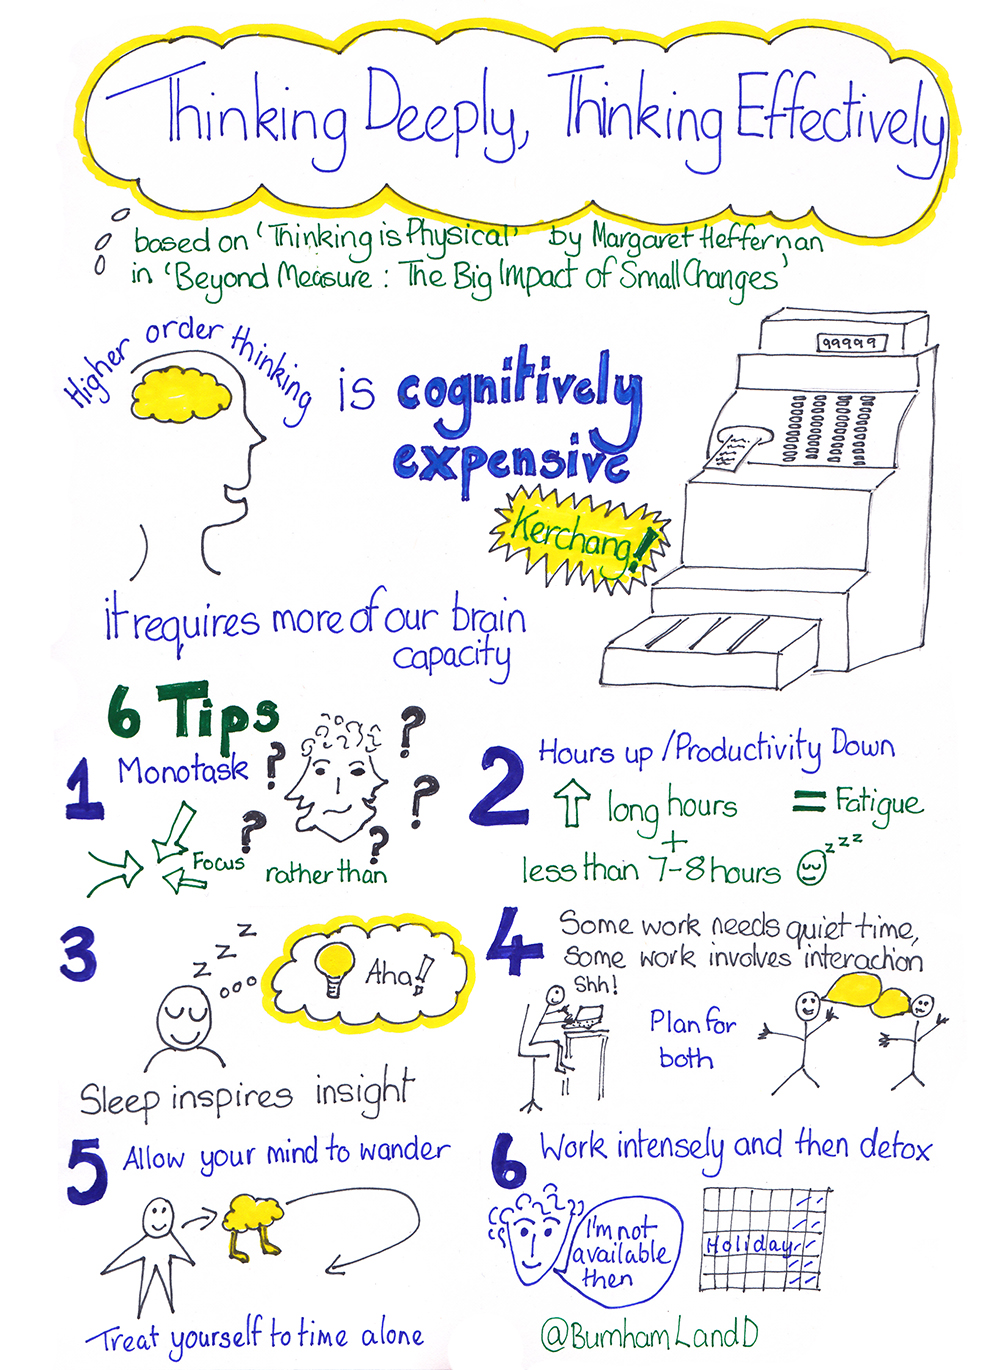 Thinking Deeply, Thinking Effectively
based on 'Thinking is Physical' by Margaret Heffernan
in 'Beyond Measure : The Big Impact of Small Changes'
Higher order thinking
is cognitively
expensive
99999
Kerchang!
it requires more of our brain
capacity
6 Tips
1 Monotask
Focus
rather than
? ? ? ? ?
2 Hours up / Productivity Down
long hours = Fatigue
+
less than 7-8 hours
z z z
3
z z z
Aha!
Sleep inspires insight
4 Some work needs quiet time,
Some work involves interaction
Shh!
Plan for
both
5 Allow your mind to wander
Treat yourself to time alone
6 Work intensely and then detox
I'm not
available
then
Holiday
@BurnhamLandD